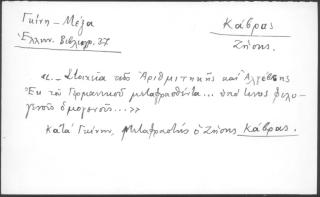 Γκίνη - Μέξα
Ἑλλην. Βιβλιογρ. 37
Κάβρας
Ζήσης.
«.- Στοιχεῖα τῆς Ἀριθμητικῆς καὶ Ἀλγέβρης
Ἐκ τοῦ Γερμανικοῦ μεταφρασθέντα... ὑπό τινος φιλο-
γενοῦς ὁμογενοῦς...»
Κατά Γκίνην, Μεταφραστής ὁ Ζήσης Κάβρας.